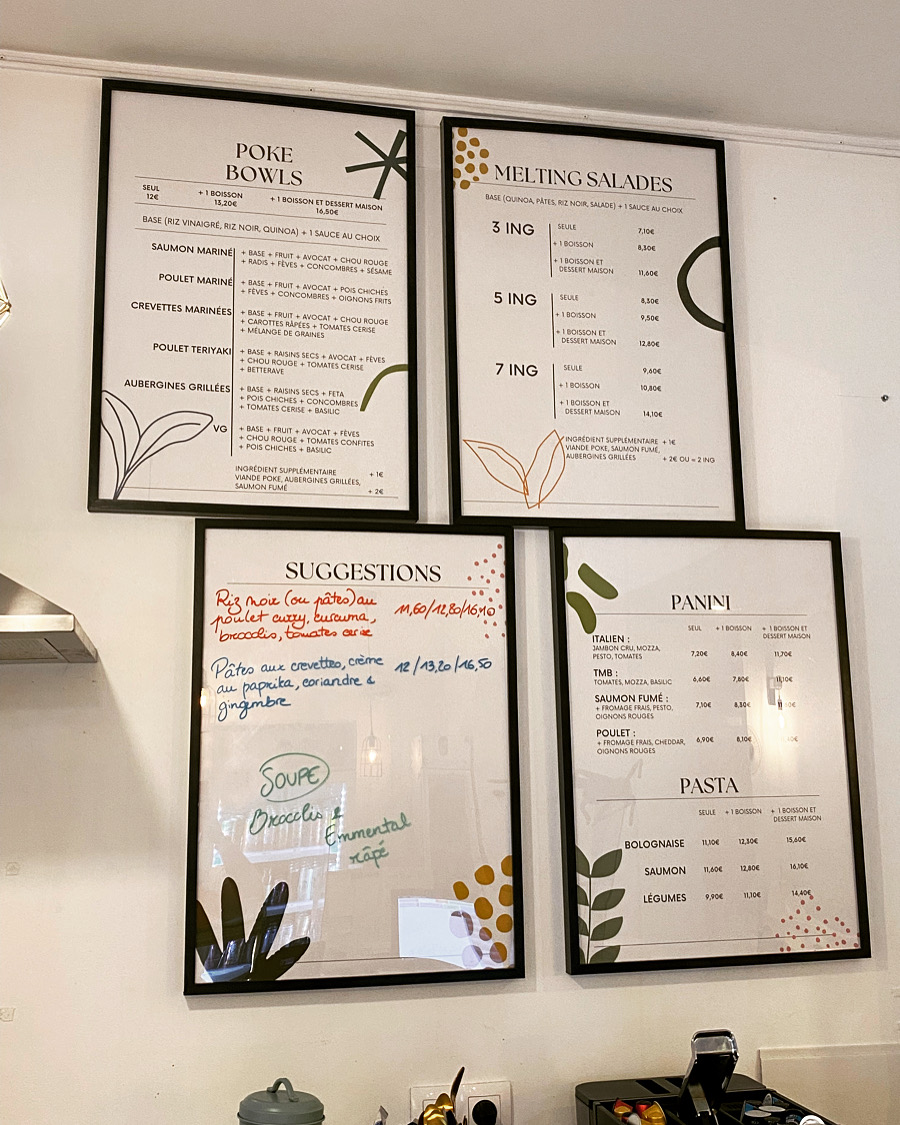 POKE
BOWLS
SEUL
12€
+ 1 BOISSON
13,20€
+ 1 BOISSON ET DESSERT MAISON
16,50€
BASE (RIZ VINAIGRÉ, RIZ NOIR, QUINOA) + 1 SAUCE AU CHOIX
SAUMON MARINÉ
+ BASE + FRUIT + AVOCAT + CHOU ROUGE
+ RADIS + FÈVES + CONCOMBRES + SÉSAME
POULET MARINÉ
+ BASE + FRUIT + AVOCAT + POIS CHICHES
+ FÈVES + CONCOMBRES + OIGNONS FRITS
CREVETTES MARINÉES
+ BASE + FRUIT + AVOCAT + CHOU ROUGE
+ CAROTTES RÂPÉES + TOMATES CERISE
+ MÉLANGE DE GRAINES
POULET TERIYAKI
+ BASE + RAISINS SECS + AVOCAT + FÈVES
+ CHOU ROUGE + TOMATES CERISE
+ BETTERAVE
AUBERGINES GRILLÉES
+ BASE + RAISINS SECS + FETA
+ POIS CHICHES + CONCOMBRES
+ TOMATES CERISE + BASILIC
VG
+ BASE + FRUIT + AVOCAT + FÈVES
+ CHOU ROUGE + TOMATES CONFITES
+ POIS CHICHES + BASILIC
INGRÉDIENT SUPPLÉMENTAIRE + 1€
VIANDE POKE, AUBERGINES GRILLÉES,
SAUMON FUMÉ + 2€
MELTING SALADES
BASE (QUINOA, PÂTES, RIZ NOIR, SALADE) + 1 SAUCE AU CHOIX
3 ING
SEULE 7,10€
+ 1 BOISSON 8,30€
+ 1 BOISSON ET
DESSERT MAISON 11,60€
5 ING
SEULE 8,30€
+ 1 BOISSON 9,50€
+ 1 BOISSON ET
DESSERT MAISON 12,80€
7 ING
SEULE 9,60€
+ 1 BOISSON 10,80€
+ 1 BOISSON ET
DESSERT MAISON 14,10€
INGRÉDIENT SUPPLÉMENTAIRE + 1€
VIANDE POKE, SAUMON FUMÉ,
AUBERGINES GRILLÉES + 2€ OU = 2 ING
SUGGESTIONS
Riz noir (ou pâtes) au
poulet curry, curcuma, 11,60/12,80/16,10
brocolis, tomates cerise
Pâtes aux crevettes, crème 12/13,20/16,50
au paprika, coriandre &
gingembre
SOUPE
Brocolis &
Emmental
râpé
PANINI
SEUL + 1 BOISSON + 1 BOISSON ET
DESSERT MAISON
ITALIEN :
JAMBON CRU, MOZZA,
PESTO, TOMATES 7,20€ 8,40€ 11,70€
TMB :
TOMATES, MOZZA, BASILIC 6,60€ 7,80€ 11,10€
SAUMON FUMÉ :
+ FROMAGE FRAIS, PESTO, 7,10€ 8,30€
OIGNONS ROUGES
POULET :
+ FROMAGE FRAIS, CHEDDAR, 6,90€ 8,10€
OIGNONS ROUGES
PASTA
SEULE + 1 BOISSON + 1 BOISSON ET
DESSERT MAISON
BOLOGNAISE 11,10€ 12,30€ 15,60€
SAUMON 11,60€ 12,80€ 16,10€
LÉGUMES 9,90€ 11,10€ 14,40€